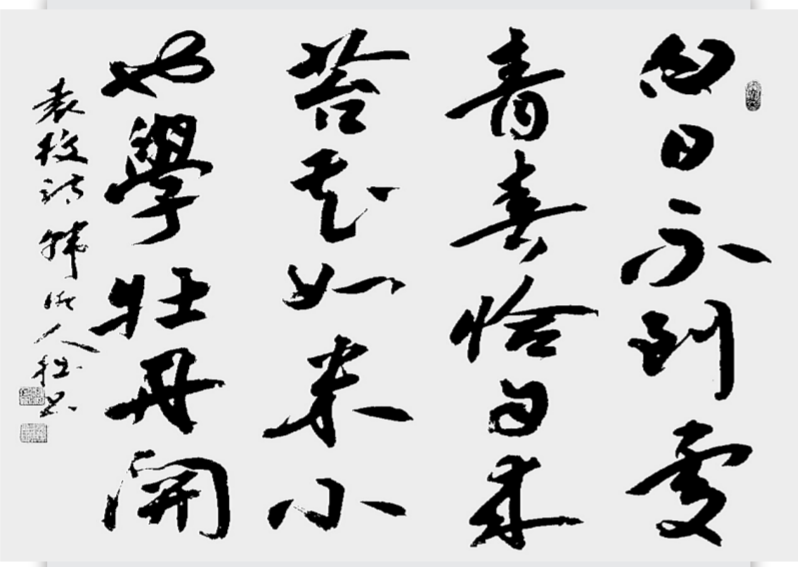 白日不到處
青春恰自來
苔花如米小
也學牡丹開
袁枚詩